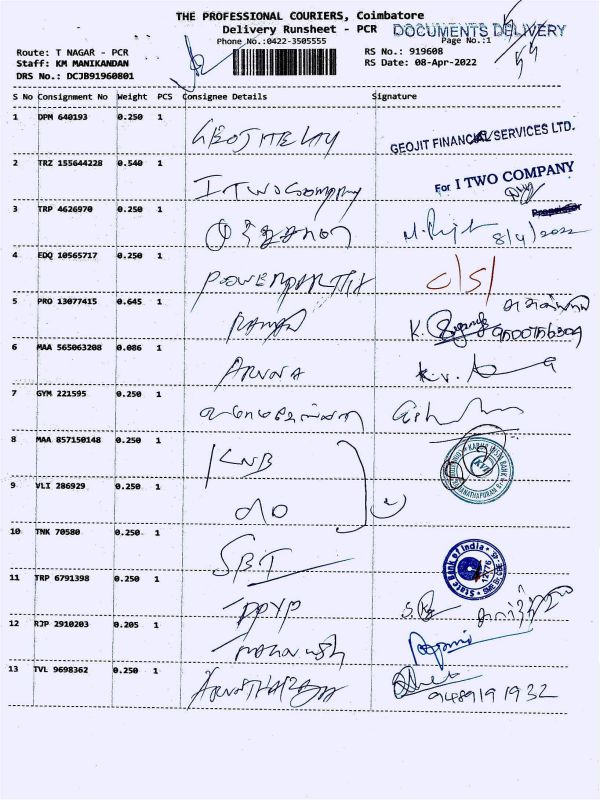 THE PROFESSIONAL COURIERS, Coimbatore
Delivery Runsheet - PCR
DOCUMENTS DELIVERY
Phone No.:0422-3505555
Page No.:1
Route: T NAGAR - PCR
RS No.: 919608
Staff: KM MANIKANDAN
RS Date: 08-Apr-2022
DRS No.: DCJB91960801
S No Consignment No Weight PCS Consignee Details Signature
1 DPM 640193 0.250 1
GEOJIT FINANCIAL SERVICES LTD.
2 TRZ 155644228 0.540 1 I TWO Coompany
For I TWO COMPANY
Proprietor
3 TRP 4626970 0.250 1
8/4/2022
4 EDQ 10565717 0.250 1 C/S/
5 PRO 13077415 0.645 1 RAMAN
K.
6 MAA 565063208 0.086 1 ARUNA K.V.
7 GYM 221595 0.250 1
8 MAA 857150148 0.250 1 KNB
9 VLI 286929 0.250 1 do
10 TNK 70580 0.250 1 SBI
State Bank of India
11 TRP 6791398 0.250 1
12 RJP 2910203 0.205 1
13 TVL 9698362 0.250 1
9489191932